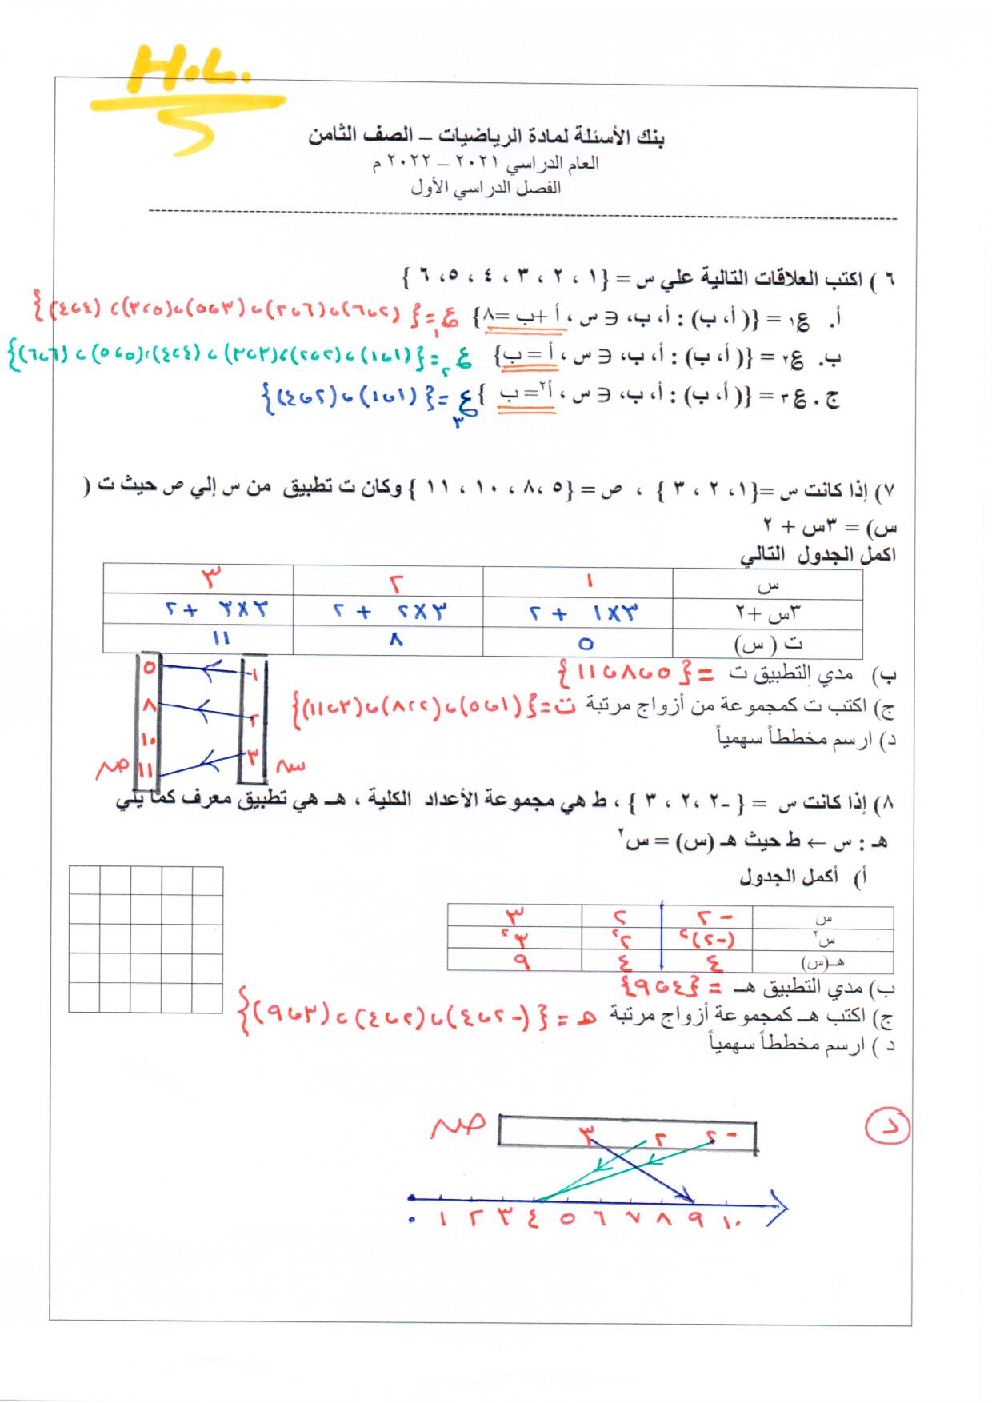 H.L.
بنك الأسئلة لمادة الرياضيات – الصف الثامن
العام الدراسي ٢٠٢١ – ٢٠٢٢ م
الفصل الدراسي الأول
٦ ) اكتب العلاقات التالية علي س = {١ ، ٢ ، ٣ ، ٤ ، ٥، ٦ }
أ. ع١ = {( أ، ب) : أ، ب، ∈ س ، أ +ب =٨} ع١ = {(٢،٦)،(٦،٢)،(٣،٥)،(٥،٣)،(٤،٤)}
ب. ع٢ = {( أ، ب) : أ، ب، ∈ س ، أ = ب} ع٢ = {(١،١)،(٢،٢)،(٣،٣)،(٤،٤)،(٥،٥)،(٦،٦)}
ج. ع٣ = {( أ، ب) : أ، ب، ∈ س ، أ٢= ب } ع٣ = {(١،١)،(٢،٤)}
٧) إذا كانت س ={١، ٢ ، ٣ } ، ص = {٥ ،٨ ، ١٠ ، ١١ } وكان ت تطبيق من س إلي ص حيث ت (
س) = ٣س + ٢
اكمل الجدول التالي
س ١ ٢ ٣
٣س +٢ ٣×١ + ٢ ٣×٢ + ٢ ٣×٣ + ٢
ت ( س) ٥ ٨ ١١
ب) مدي التطبيق ت = {٥،٨،١١}
ج) اكتب ت كمجموعة من أزواج مرتبة ت={(١،٥)،(٢،٨)،(٣،١١)}
د) ارسم مخططاً سهمياً
١ ٥
٢ ٨
١٠
٣ ١١
س ص
٨) إذا كانت س = { -٢ ،٢ ، ٣ } ، ط هي مجموعة الأعداد الكلية ، هـ هي تطبيق معرف كما يلي
هـ : س ← ط حيث هـ (س) = س٢
أ) أكمل الجدول
س -٢ ٢ ٣
س٢ (-٢)٢ ٢٢ ٣٢
هـ(س) ٤ ٤ ٩
ب) مدي التطبيق هـ = {٤،٩}
ج) اكتب هـ كمجموعة أزواج مرتبة هـ = {(-٢،٤)،(٢،٤)،(٣،٩)}
د ) ارسم مخططاً سهمياً
د
-٢ ٢ ٣ ص
٠ ١ ٢ ٣ ٤ ٥ ٦ ٧ ٨ ٩ ١٠